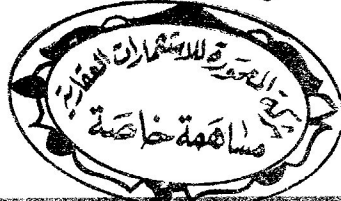 شركة المعمورة للاستثمارات العقارية
مساهمة خاصة